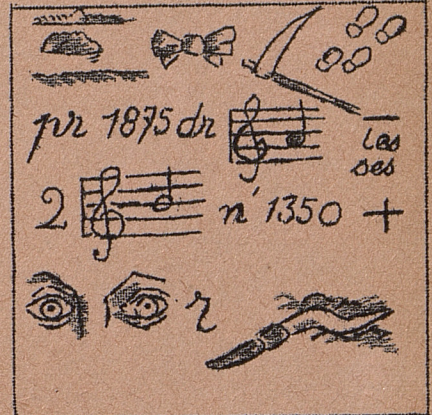 pr 1875 dr
las
ses
2 n' 1350 +
r